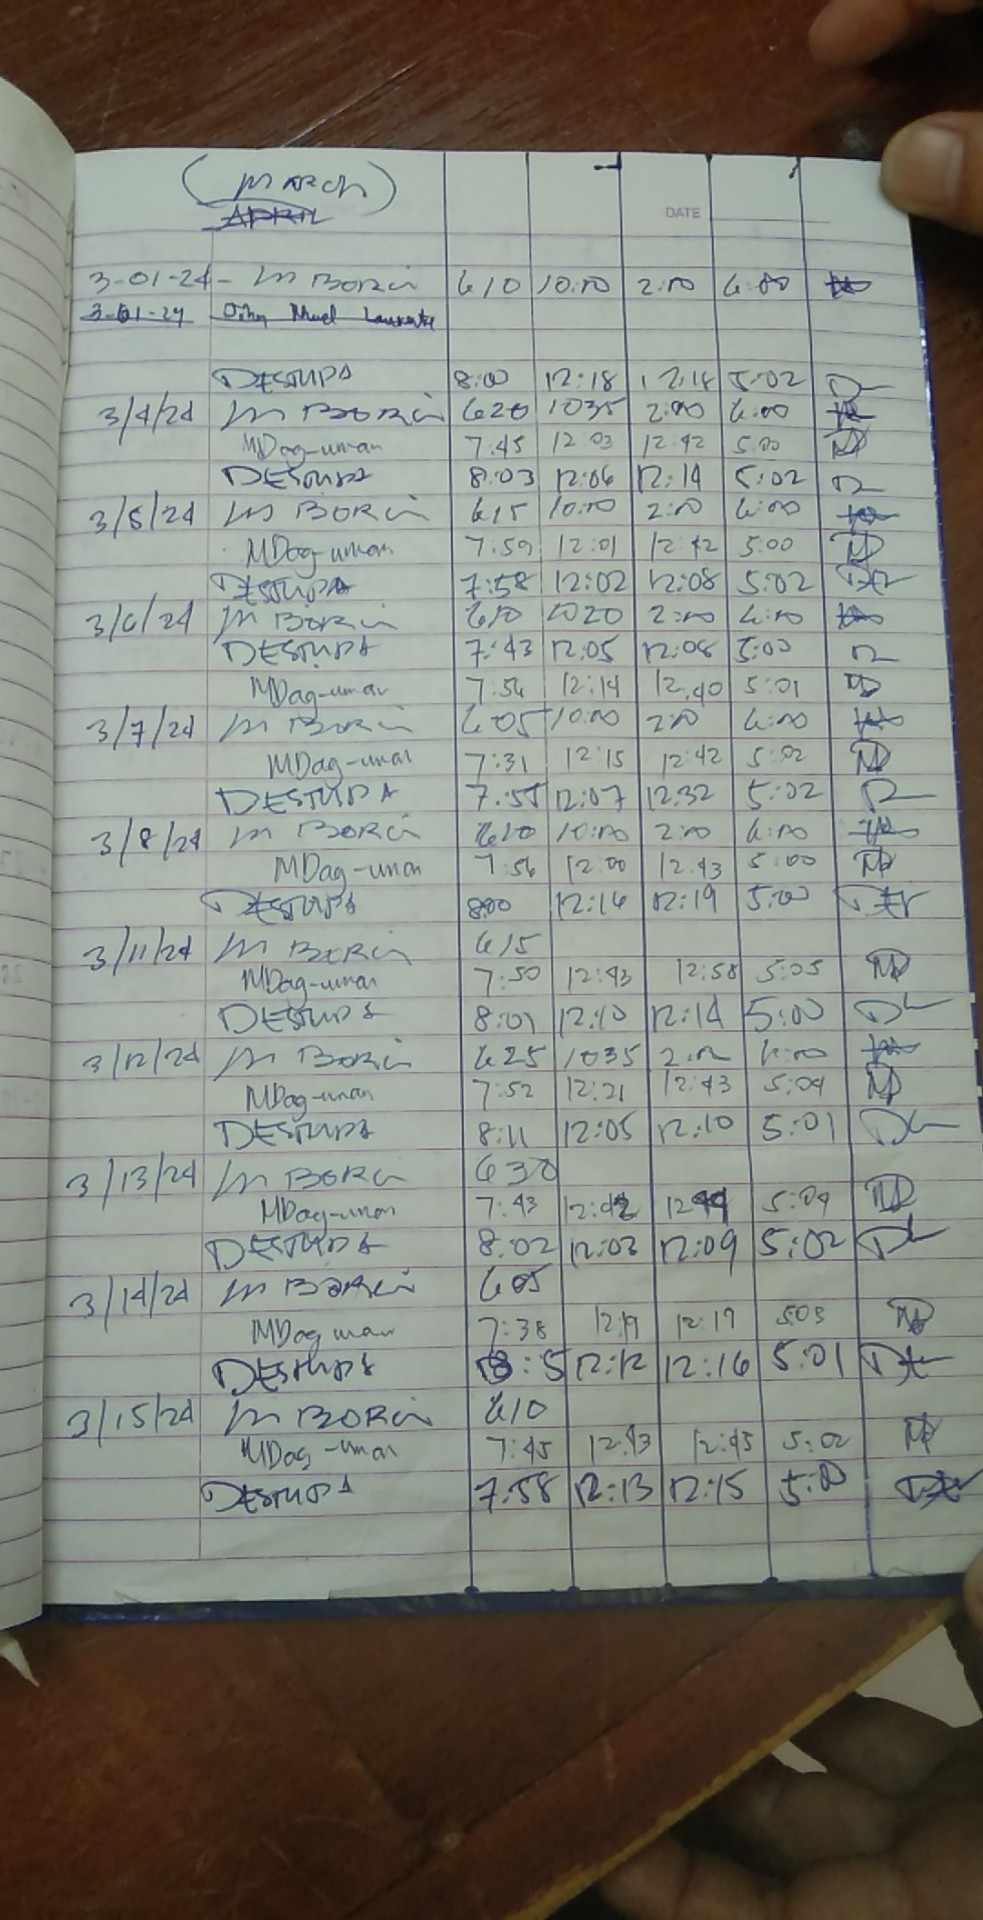 (MARCH)
APRIL
DATE
3-01-24 - M BORCI 610 10:00 2:00 6:00
3-01-24
DESTUPA 8:00 12:18 12:18 5:02
3/4/24 M BORCI 620 1035 2:00 6:00
MDag-uman 7:45 12:03 12:42 5:00
DESTUPA 8:03 12:06 12:14 5:02
3/5/24 M BORCI 615 10:00 2:00 6:00
MDag-uman 7:59 12:01 12:42 5:00
DESTUPA 7:58 12:02 12:08 5:02
3/6/24 M BORCI 610 1020 2:00 6:00
DESTUPA 7:43 12:05 12:08 5:00
MDag-uman 7:56 12:14 12:40 5:01
3/7/24 M BORCI 605 10:00 2:00 6:00
MDag-uman 7:31 12:15 12:42 5:02
DESTUPA 7:55 12:07 12:32 5:02
3/8/24 M BORCI 610 10:00 2:00 6:00
MDag-uman 7:56 12:00 12:43 5:00
DESTUPA 8:00 12:16 12:19 5:00
3/11/24 M BORCI 615
MDag-uman 7:50 12:43 12:58 5:05
DESTUPA 8:01 12:10 12:14 5:00
3/12/24 M BORCI 625 1035 2:00 6:00
MDag-uman 7:52 12:21 12:43 5:04
DESTUPA 8:11 12:05 12:10 5:01
3/13/24 M BORCI 630
MDag-uman 7:43 12:42 5:04
DESTUPA 8:02 12:03 12:09 5:02
3/14/24 M BORCI 605
MDag uman 7:38 12:17 5:03
DESTUPA 12:12 12:16 5:01
3/15/24 M BORCI 610
MDag-uman 7:45 12:43 12:45 5:02
DESTUPA 7:58 12:13 12:15 5:00